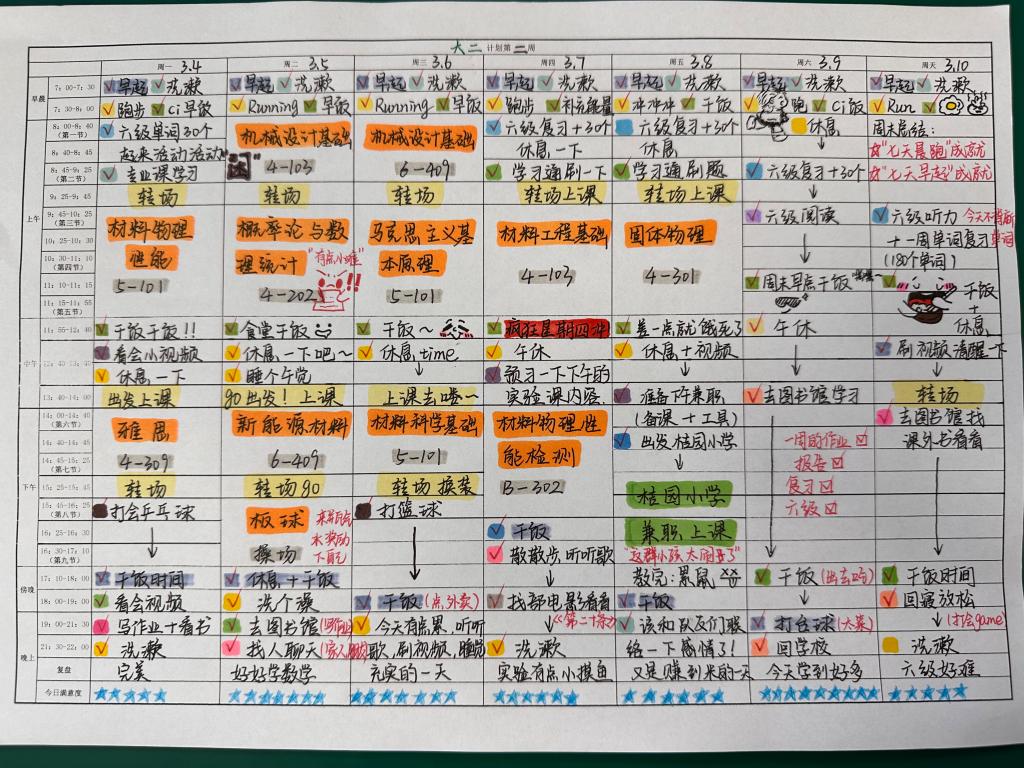 大二 计划第二周
周一 3.4 周二 3.5 周三 3.6 周四 3.7 周五 3.8 周六 3.9 周天 3.10
早晨 7:00-7:30 早起 洗漱 早起 洗漱 早起 洗漱 早起 洗漱 早起 洗漱 早起 洗漱 早起 洗漱
7:30-8:00 跑步 Ci早饭 Running 早饭 Running 早饭 跑步 补充能量 冲冲冲 干饭 跑 Ci饭 Run
8:00-8:40 (第一节) 六级单词30个 机械设计基础 机械设计基础 六级复习+30个 六级复习+30个 休息 周末总结:
8:40-8:45 起来活动活动 "困" 4-103 6-409 休息一下 休息 "七天晨跑"成就
8:45-9:25 (第二节) 专业课学习 学习通刷一下 学习通刷题 六级复习+30个 "七天早起"成就
9:25-9:45 转场 转场 转场 转场上课 转场上课
上午 9:45-10:25 (第三节) 材料物理 概率论与数 马克思主义基 材料工程基础 固体物理 六级阅读 六级听力 今天不背新单词
10:25-10:30 性能 理统计 "有点小难" 本原理 +一周单词复习
10:30-11:10 (第四节) 4-103 4-301 (180个单词)
11:10-11:15 5-101 4-202 !! 5-101 周末早点干饭 干饭
11:15-11:55 (第五节) +
11:55-12:40 干饭干饭!! 食堂干饭 干饭~ 疯狂星期四冲 差一点就饿死了 午休 休息
中午 12:40-13:40 看会小视频 休息一下吧~ 休息time 午休 休息+视频 刷视频清醒一下
休息一下 睡个午觉 预习一下下午的
13:40-14:00 出发上课 go出发! 上课 上课去喽~ 实验课内容 准备下午兼职 去图书馆学习 转场
14:00-14:40 (第六节) 雅思 新能源材料 材料科学基础 材料物理性 (备课+工具) 去图书馆找
14:40-14:45 能检测 出发桂园小学 一周的作业 课外书看看
14:45-15:25 (第七节) 4-309 6-409 5-101 报告
下午 15:25-15:45 转场 转场go 转场 换装 B-302 桂园小学 复习
15:45-16:25 (第八节) 打会乒乓球 板球 打篮球 六级
16:25-16:30 操场 干饭 兼职上课
16:30-17:10 (第九节) 散散步,听听歌 "这群小孩太闹了"
傍晚 17:10-18:00 干饭时间 休息+干饭 教完:累鼠, 干饭(出去吃) 干饭时间
18:00-19:00 看会视频 洗个澡 干饭(点外卖) 找部电影看看 干饭 回寝放松
晚上 19:00-21:30 写作业+看书 去图书馆(写作业) 今天有点累,听听 《第二十条》 该和队友们联 打台球(大菜) (打会game)
21:30-22:00 洗漱 找人聊天 歌,刷视频,睡觉 洗漱 络一下感情了! 回学校 洗漱
复盘 完美 好好学数学 充实的一天 实验有点小摸鱼 又是赚到米的一天 今天学到好多 六级好难
今日满意度